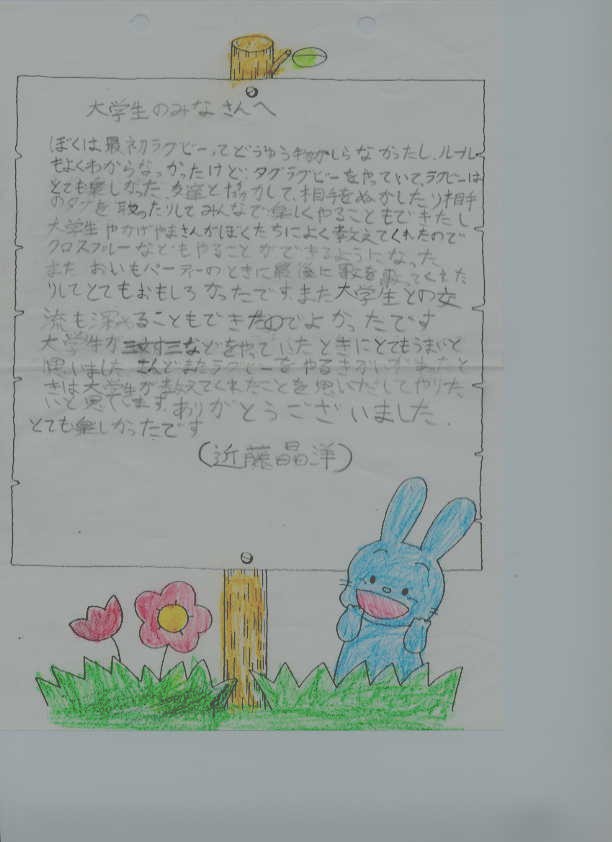 大学生のみなさんへ
ぼくは最初ラグビーってどうゆうきゅがしらなかったし、ルール
もよくわからなっかったけど、タグラグビーをやっていて、ラグビーは
とても楽しかった。友達とパスして、相手をぬかしたり相手
のタグを取ったりしてみんなで楽しくやることもできたし
大学生やかげやまさんがぼくたちによく教えてくれたので
クロスプレーなどもやることができるようになった
また おいもパーティーのときに最後に歌を歌ってくれた
りしてとてもおもしろかったです。また大学生との交
流も深めることもできたのでよかったです
大学生が などをやっていたときにとてもうまいと
思いました こんどまたラグビーをやるきかいがあったと
きは大学生が教えてくれたことを思いだしてやりた
いと思てます。ありがとうございました。
とても楽しかったです
(近藤晶洋)